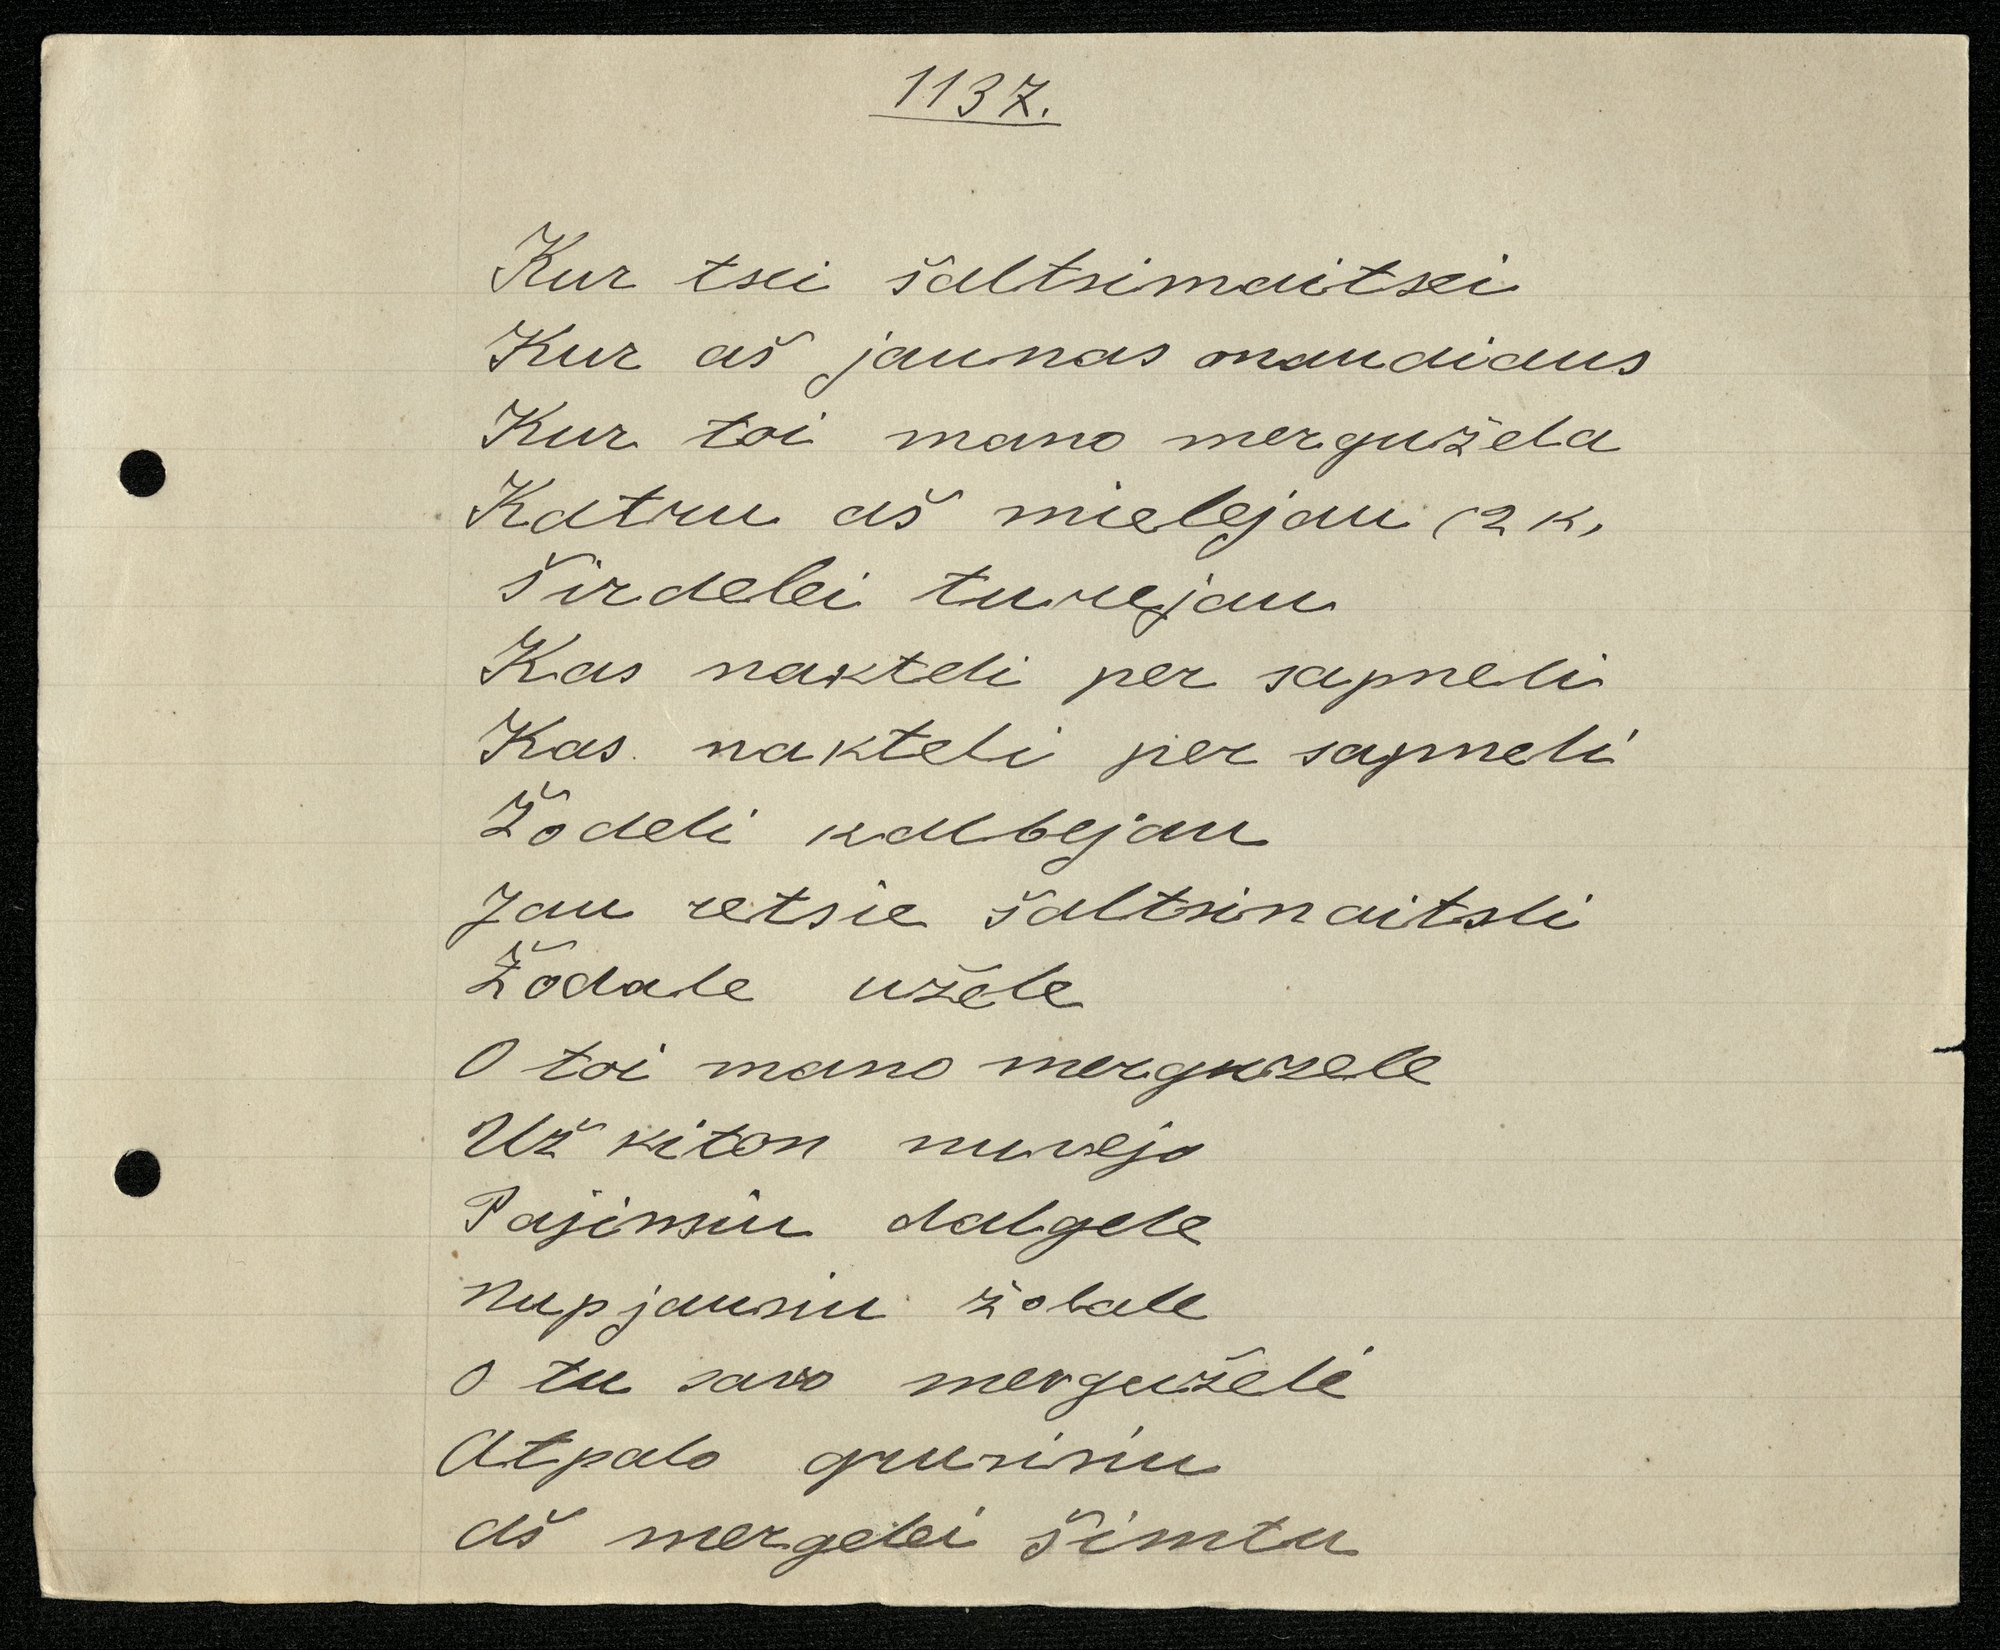 1137.
Kur tsei šaltsimaitsei
Kur aš jaunas maudiaus
Kur toi mano mergužela
Katru aš mielejau (2 k,
Širdelei turejau
Kas nakteli per sapneli
Kas nakteli per sapneli
Žodeli kalbejau
Jau retsie šaltsinaitsli
Žodale užele
O toi mano merguzele
Už kiton nuvejo
Pajimsiu dalgele
Nupjausiu žolale
O tu savo mergužele
Atpalo grusisiu
Aš mergelei šimtu